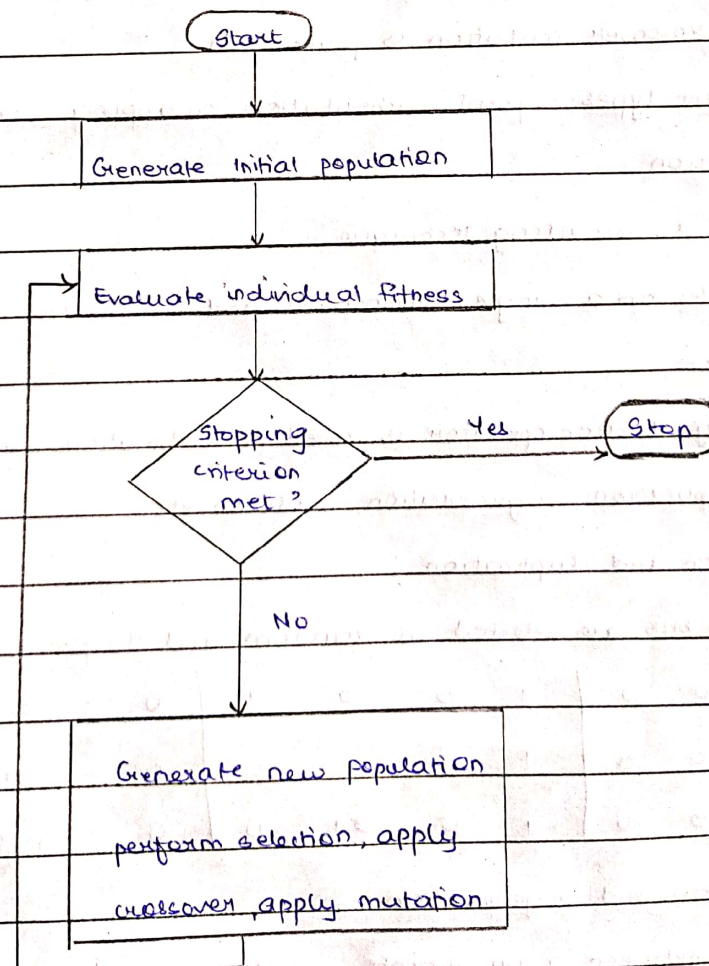 Start
Generate initial population
Evaluate individual fitness
Stopping
criterion
met ?
Yes
Stop
No
Generate new population
perform selection, apply
crossover, apply mutation